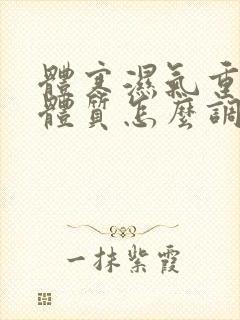 體寒濕氣重
體質怎麼調
一抹紫霞